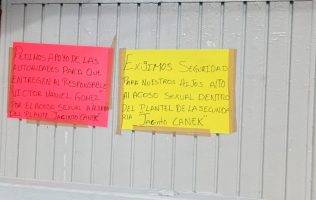 PEDIMOS APOYO DE LAS
AUTORIDADES PARA QUE
ENTREGEN AL RESPONSABLE
"VICTOR MANUEL GOMEZ"
POR EL ACOSO SEXUAL A ALUMNAS
DEL PLANTEL "JACINTO CANEK"
EXIJIMOS SEGURIDAD
PARA NUESTROS HIJOS ALTO
AL ACOSO SEXUAL DENTRO
DEL PLANTEL DE LA SECUNDA
RIA "JACINTO CANEK"